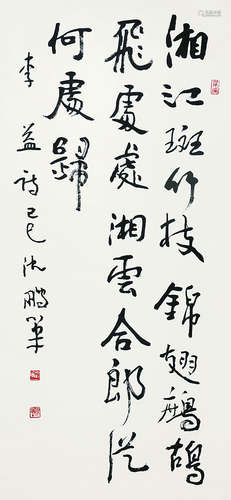 湘江斑竹枝錦翅鷓鴣
飛處處湘雲合郎從
何處歸
李益詩己巳沈鵬草